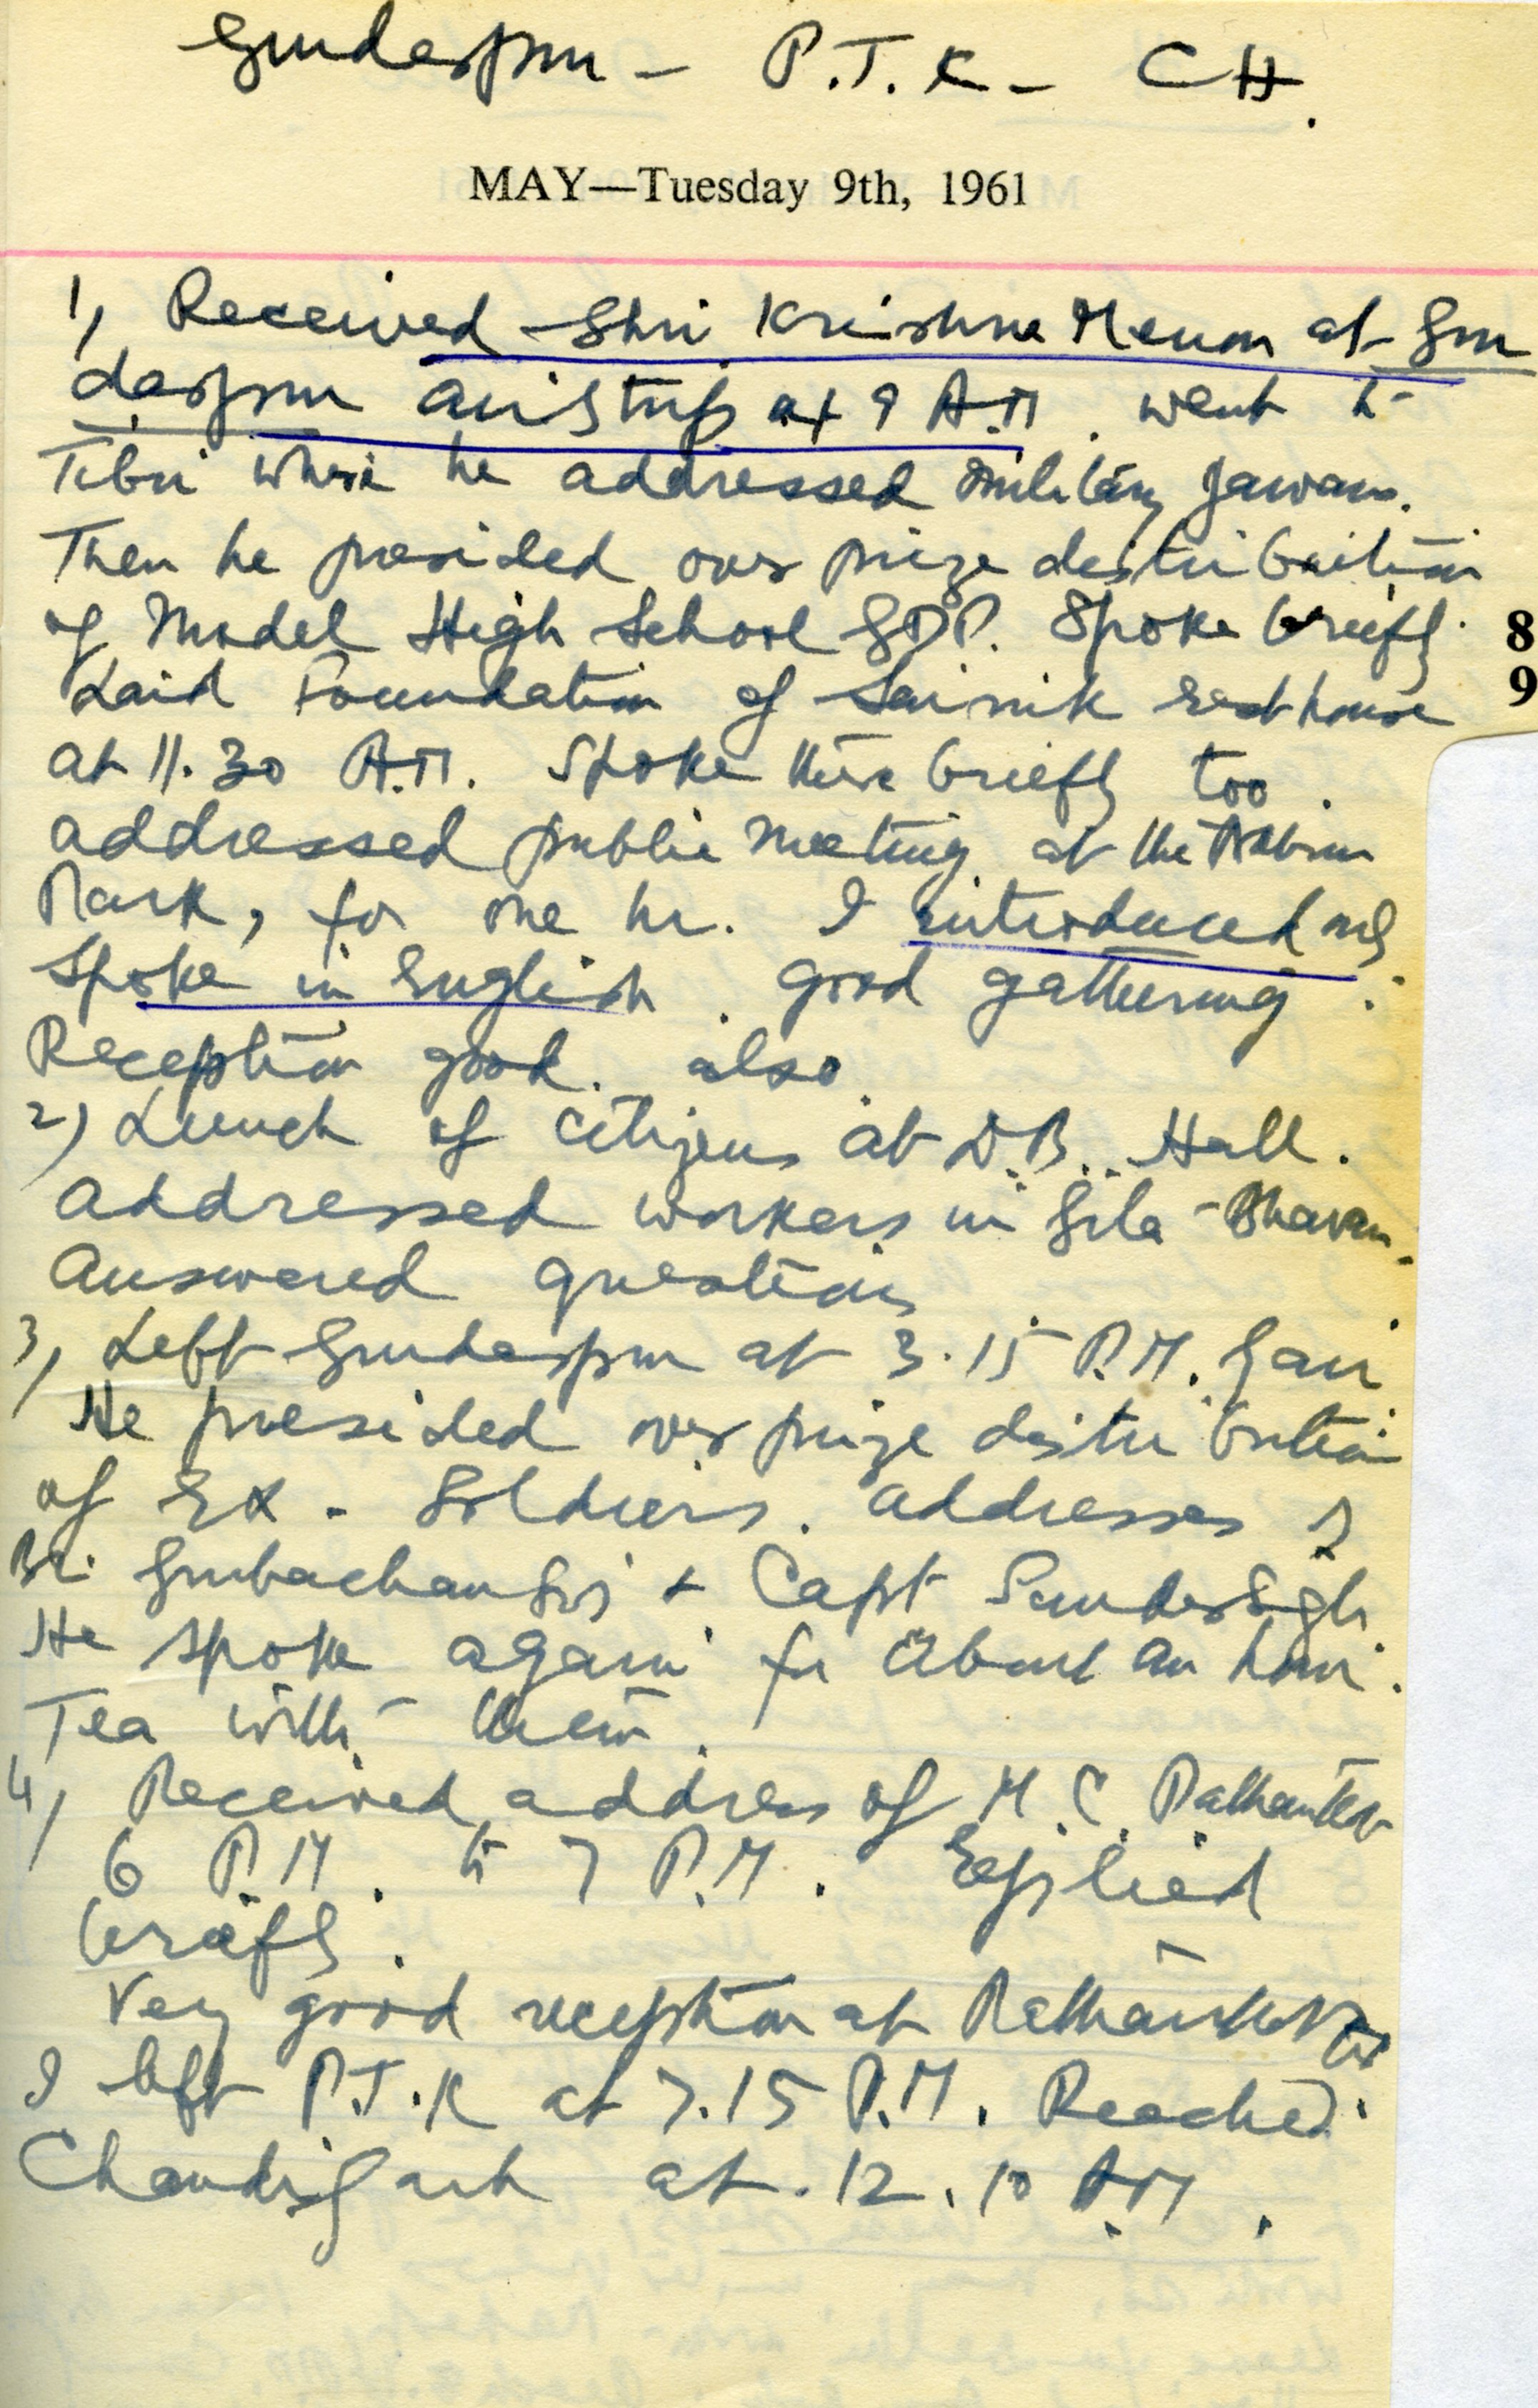 Gurdaspur - P.T.K - CH.
MAY—Tuesday 9th, 1961
1, Received Shri Krishna Menon at Gur
daspur airstrip at 9 A.M. went to
Tibri where he addressed military Jawans.
Then he presided over prize distribution
of Model High School GDP. Spoke briefly. 8
Laid Foundation of Sainik rest house 9
at 11.30 A.M. Spoke there briefly too.
addressed public meeting at the
Park, for one hr. I introduced and
Spoke in English. good gathering.
Reception good also
2) Lunch of citizens at D.B. Hall.
addressed workers in Bhavan.
Answered questions
3, Left Gurdaspur at 3.15 P.M.
He presided over prize distribution
of Ex-Soldiers. addresses of
Gurbachan & Capt Sunder Singh
He spoke again for about an hour.
Tea with them.
4, Received address of M.C. Pathankot
6 P.M. to 7 P.M. replied
briefly.
Very good reception at Pathankot
I left P.T.K at 7.15 P.M. Reached
Chandigarh at 12.10 A.M.